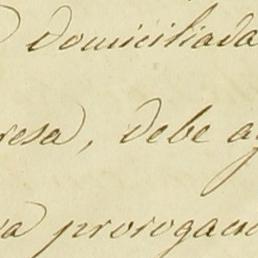 domiciliada
resa, debe a
va prorogac